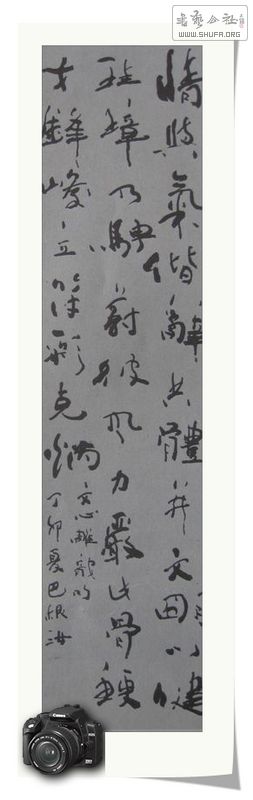 书艺公社
WWW.SHUFA.ORG
情與氣偕辭共體并文明以健
珪璋乃騁蔚彼風力嚴此骨鯁
才鋒峻立符采克炳
文心雕龍
丁卯夏巴根汝
Canon